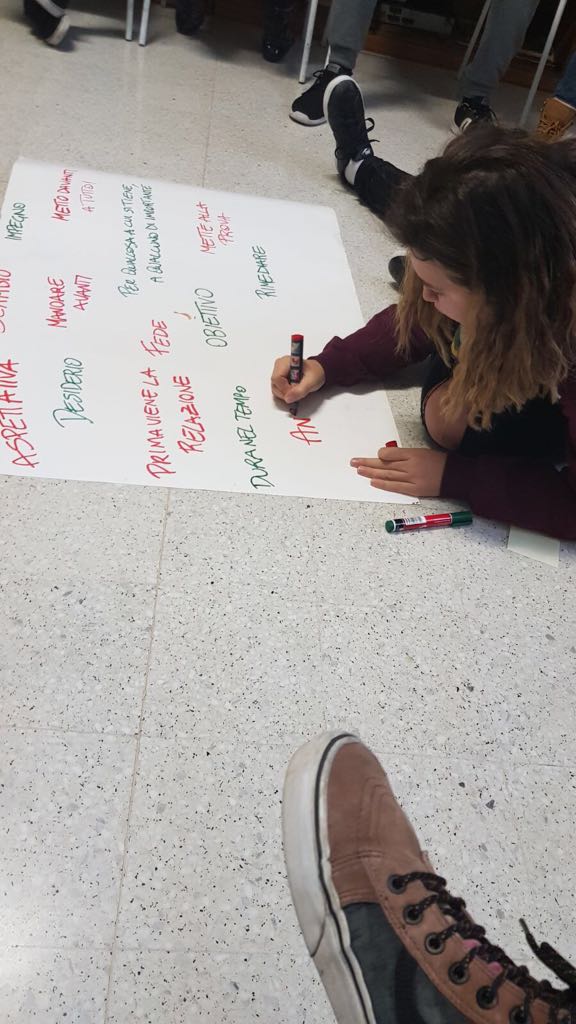 ASPETTATIVA
IMPEGNO
DESIDERIO
MANDARE
AVANTI
METTO DAVANTI
A TUTTO
PRIMA VIENE LA FEDE
RELAZIONE
PER QUALCOSA A CUI SI TIENE,
A QUALCUNO DI IMPORTANTE
OBIETTIVO
METTE ALLA
PROVA
DURA NEL TEMPO
RIMEDIARE
AN